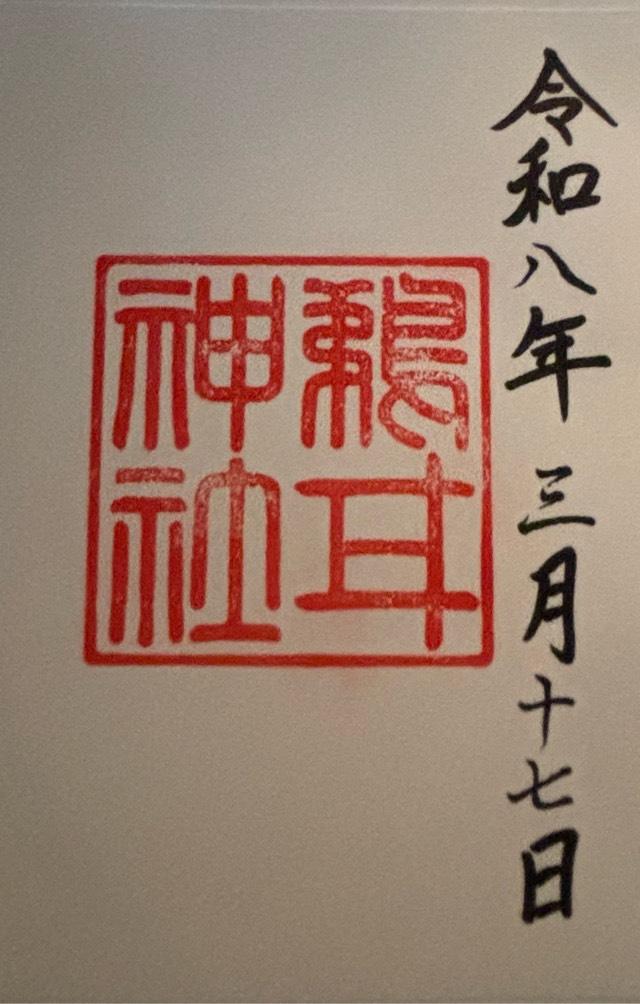 令和八年 三月十七日
鵜
神社